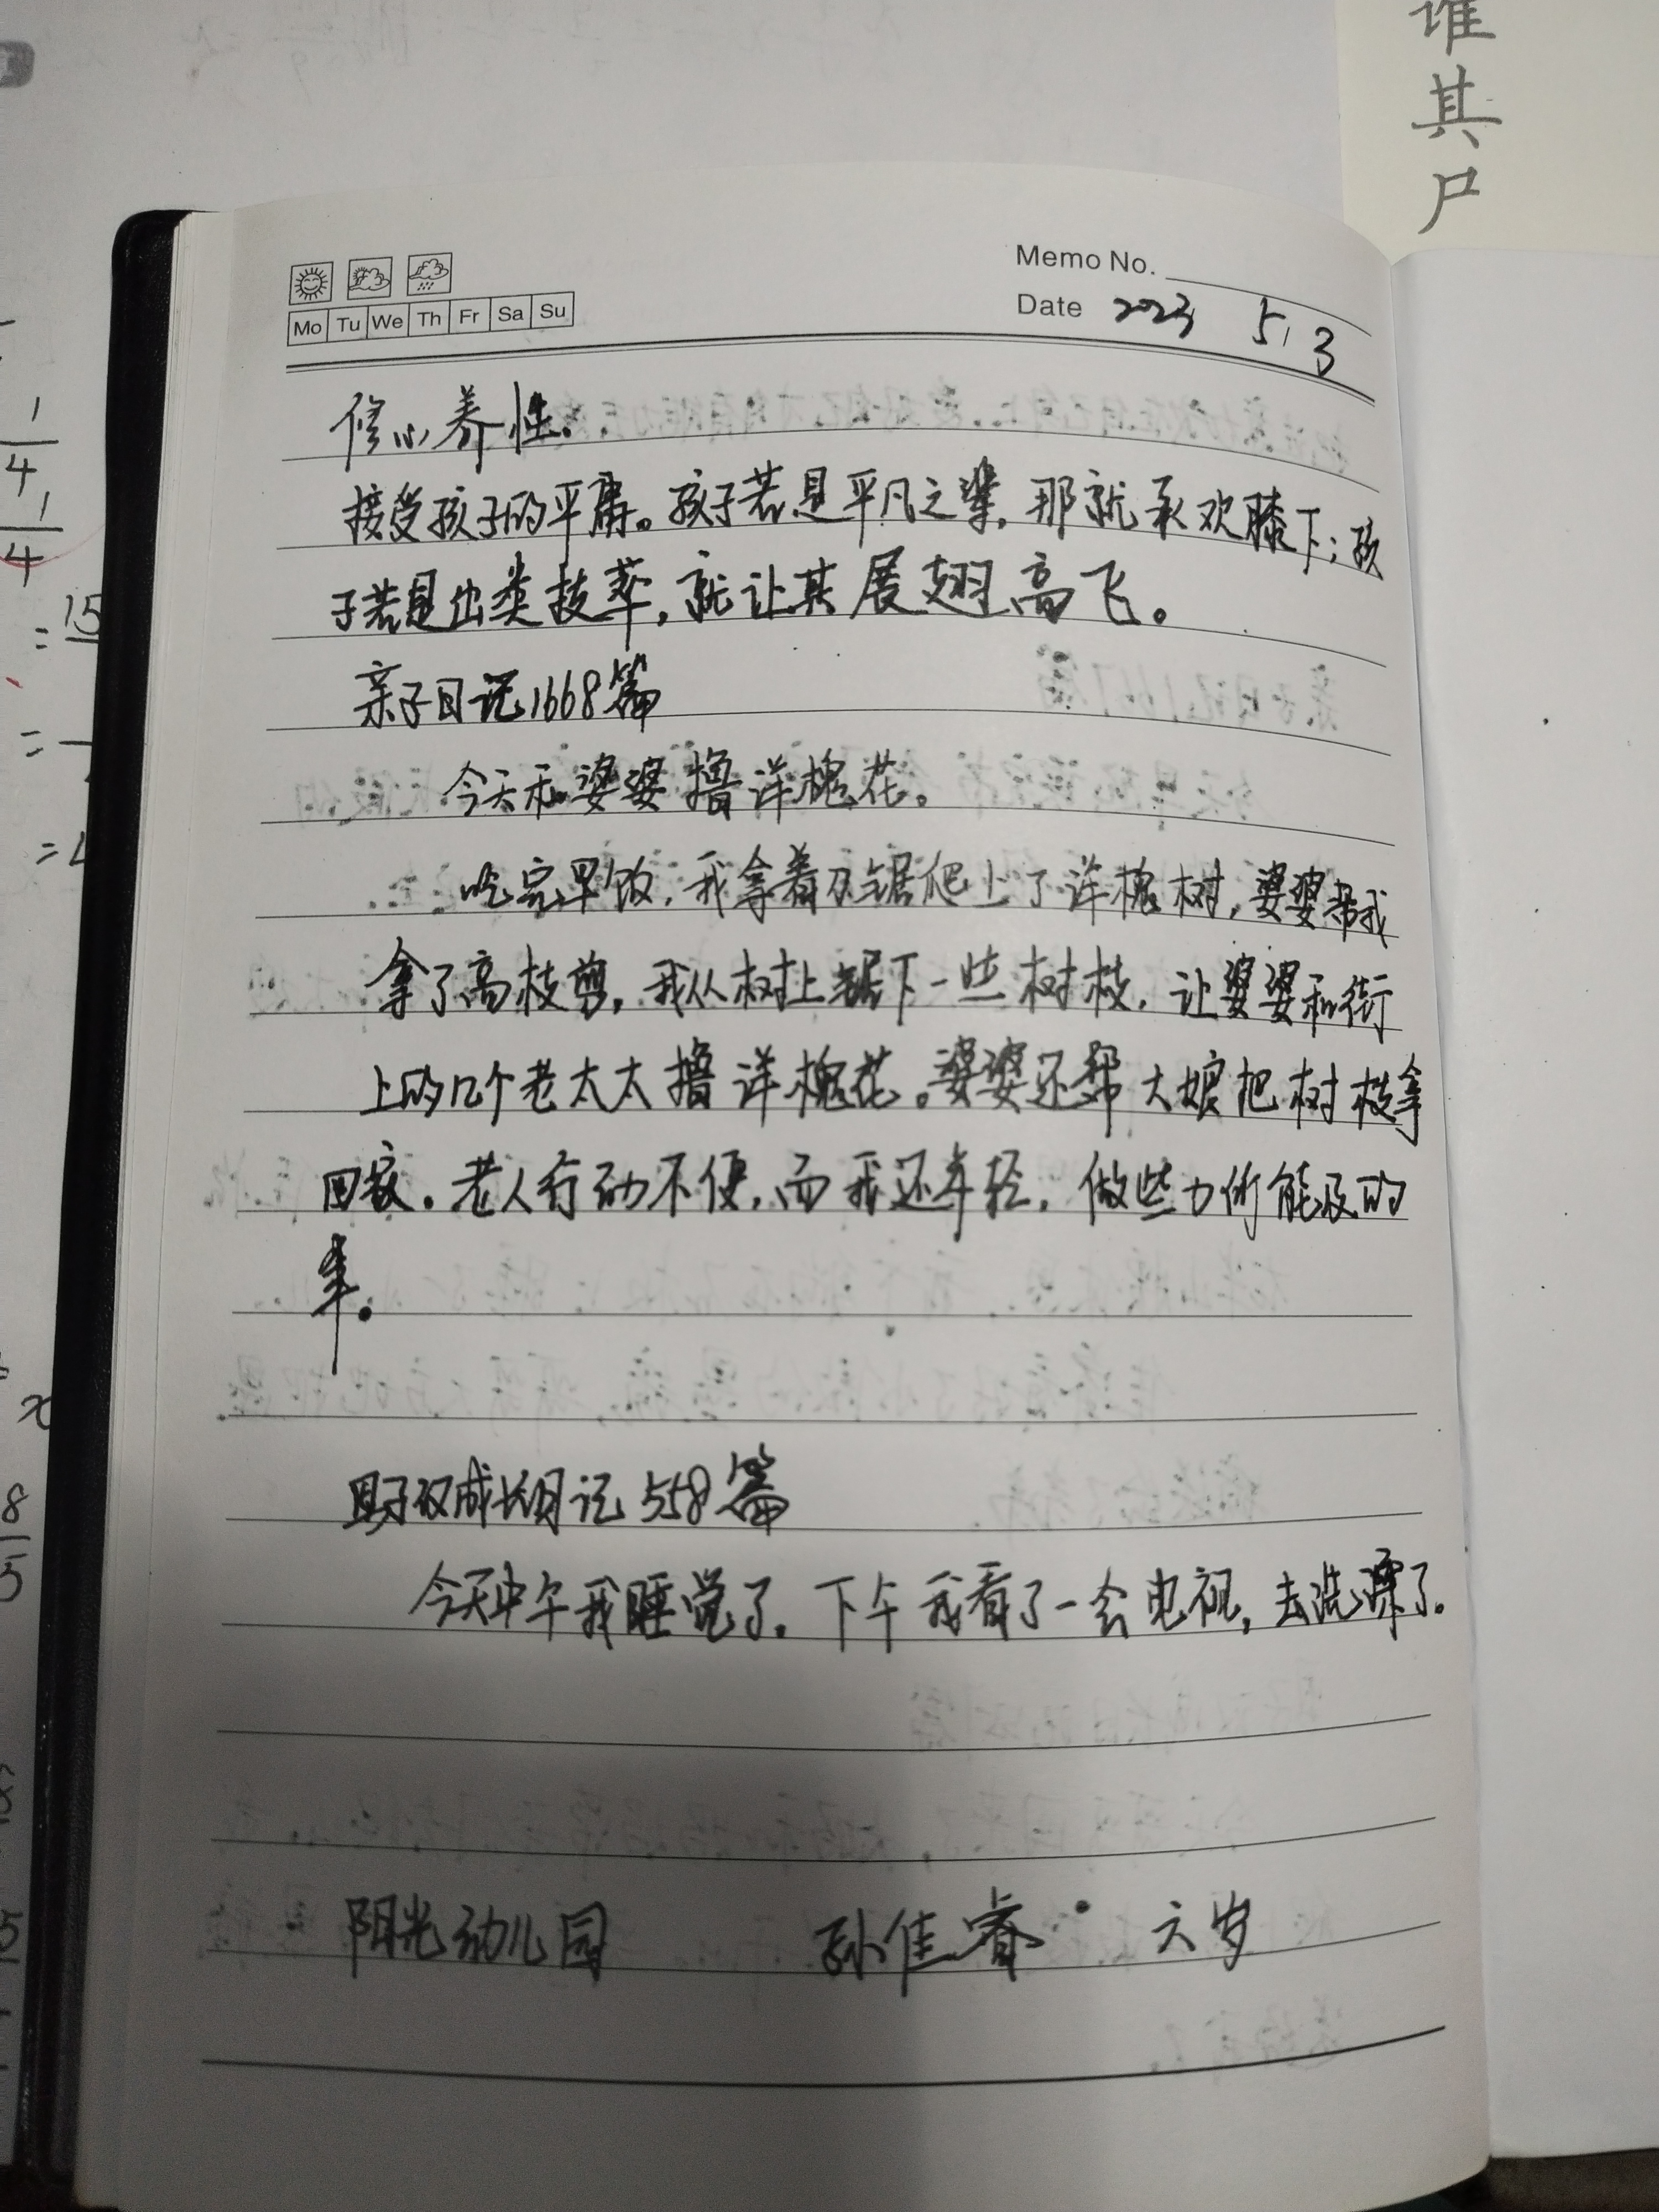 谁
其
尸
Memo No.
Date 2023 5,3
Mo Tu We Th Fr Sa Su
修心养性。
接受孩子的平庸。孩子若是平凡之辈，那就承欢膝下；孩
子若是出类拔萃，就让其展翅高飞。
亲子日记1668篇
今天和婆婆撸洋槐花。
吃完早饭，我拿着刀锯爬上了洋槐树，婆婆帮我
拿了高枝剪，我从树上锯下一些树枝，让婆婆和街
上的几个老太太撸洋槐花。婆婆还帮大娘把树枝拿
回家。老人行动不便，而我还年轻，做些力所能及的
事。
成长日记558篇
今天中午我睡觉了，下午我看了一会电视，去洗澡了。
阳光幼儿园 孙佳睿 六岁
1
4
1
4
=15
=
=
x
8
5
5